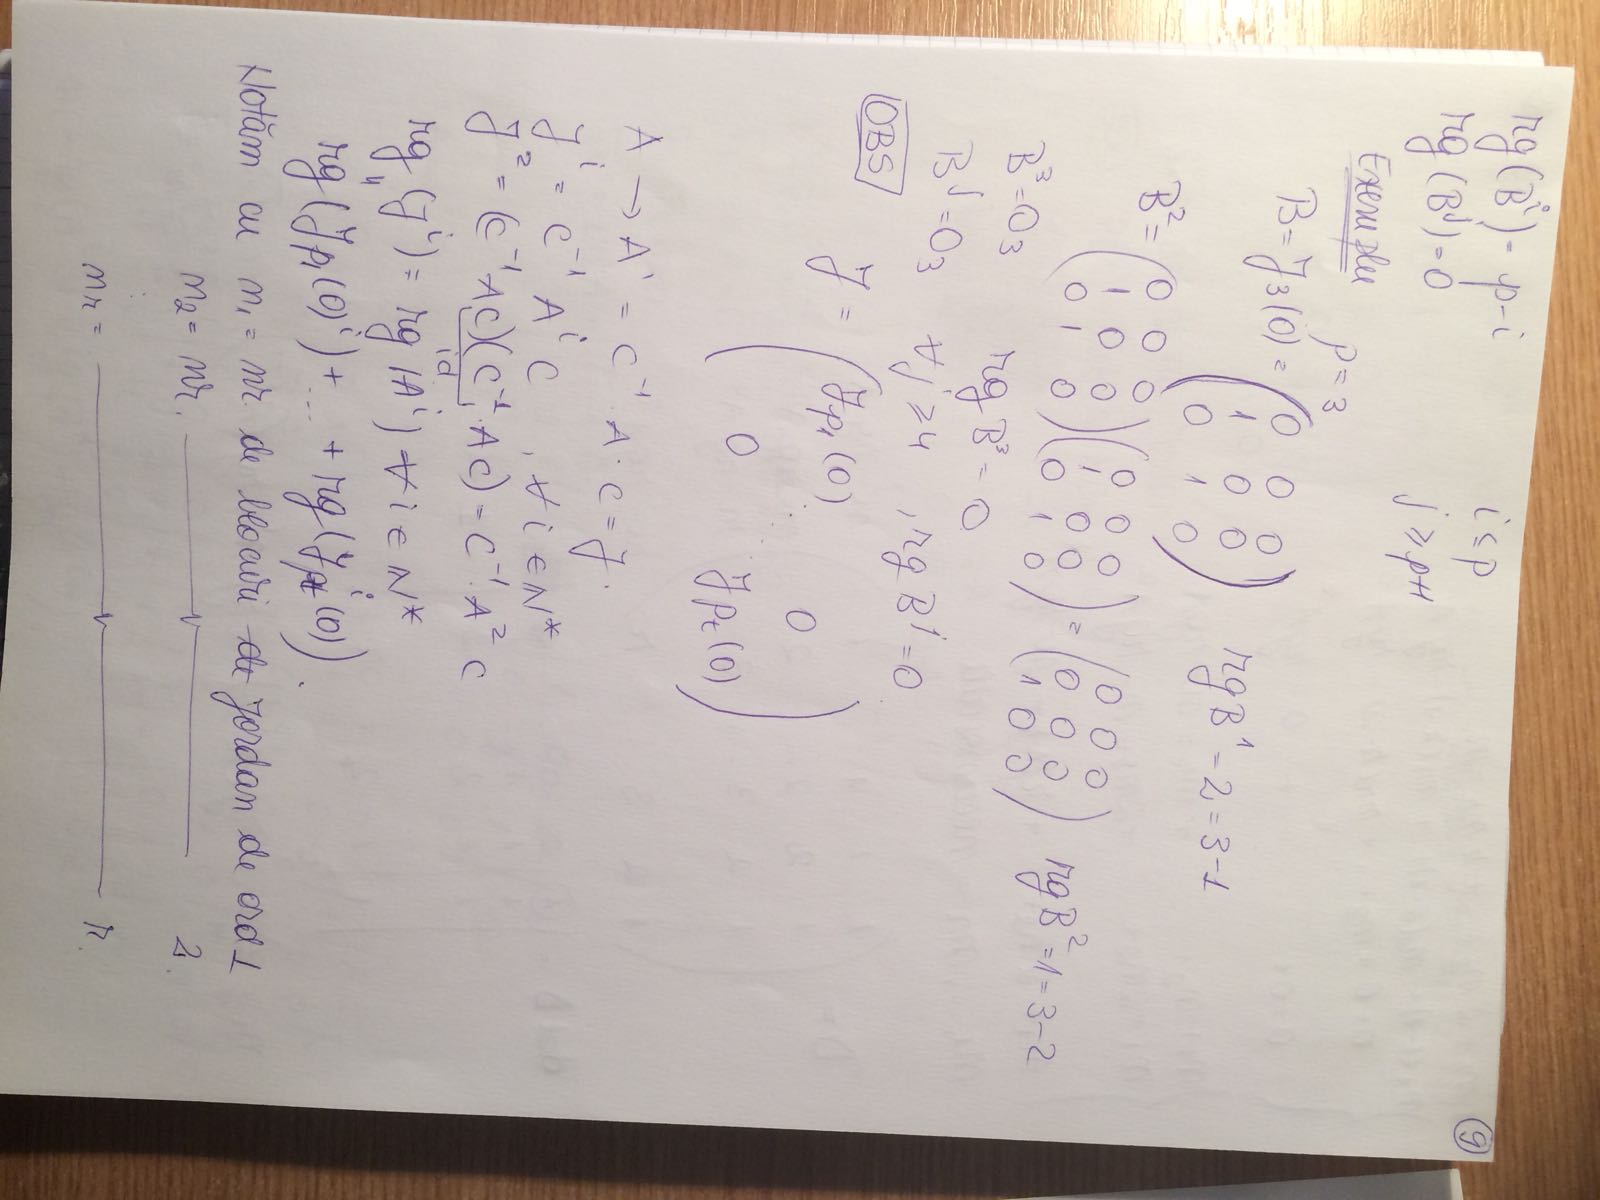 ⑨
rg(Bⁱ) = p-i i ≤ p
rg(Bʲ) = 0 j ≥ p+1
Exemplu p = 3
B = J₃(0) = ( 0 0 0 / 1 0 0 / 0 1 0 ) rg B¹ = 2 = 3-1
B² = ( 0 0 0 / 1 0 0 / 0 1 0 ) ( 0 0 0 / 1 0 0 / 0 1 0 ) = ( 0 0 0 / 0 0 0 / 1 0 0 ) rg B² = 1 = 3-2
B³ = O₃ rg B³ = 0
Bʲ = O₃ ∀ j ≥ 4 , rg Bʲ = 0
OBS
J = ( Jp₁(0) ... 0 / 0 Jpₜ(0) )
A → A' = C⁻¹ · A · C = J.
Jⁱ = C⁻¹ Aⁱ C , ∀ i ∈ N*
J² = (C⁻¹ A C)(C⁻¹ · A C) = C⁻¹ · A² C
id
rg (Jⁱ) = rg (Aⁱ) ∀ i ∈ N*
"
rg (Jp₁(0)ⁱ) + ... + rg (Jpₜⁱ(0)).
Notăm cu n₁ = nr. de blocuri de Jordan de ord 1
n₂ = nr. —〃— 2
⋮
nr = —〃— r.